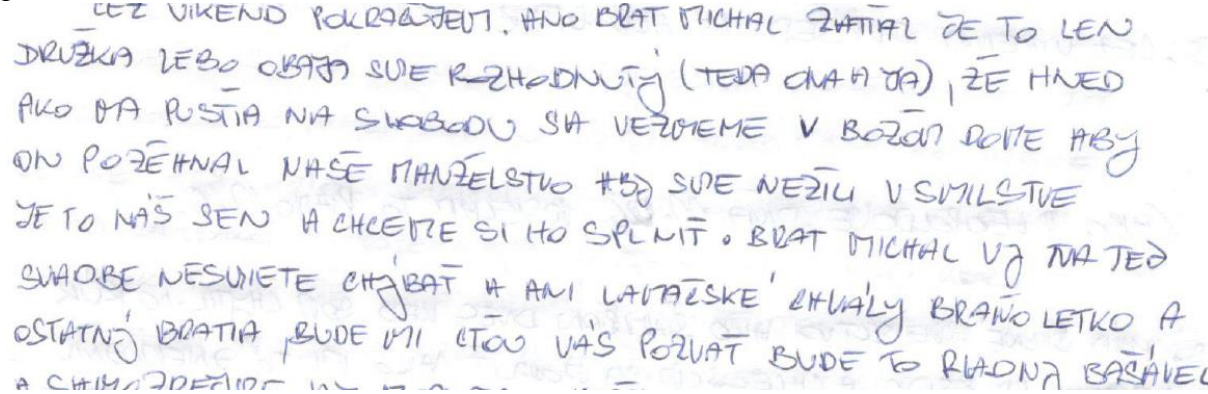 CEZ VIKEND POKRAČUJEM. ANO BRAT MICHAL ZATIAL JE TO LEN
DRUŽKA LEBO OBAJA SME ROZHODNUTÝ (TEDA ONA A JA), ŽE HNEĎ
AKO MA PUSTIA NA SLOBODU SA VEZMEME V BOŽOM DOME ABY
ON POŽEHNAL NAŠE MANŽELSTVO ABY SME NEŽILI V SMILSTVE
JE TO NÁŠ SEN A CHCEME SI HO SPLNIŤ. BRAT MICHAL VY NA TEJ
SVADBE NESMIETE CHÝBAŤ A ANI CHVÁLY BRAŇO LETKO A
OSTATNÝ BRATIA, BUDE MI CŤOU VÁS POZVAŤ BUDE TO RIADNY BAŠAVEL